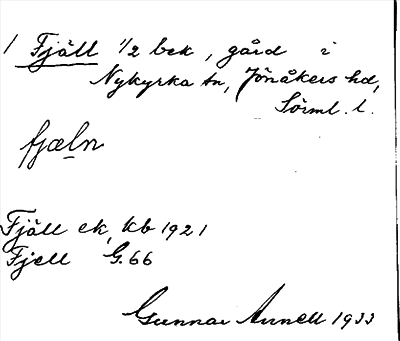 1 Fjäll 1/2 bek, gård i
Nykyrka sn, Jönåkers hd,
Sörml. l.
fjæln
Fjäll ek, kb 1921
Fjell G. 66
Gunnar Arnell 1933